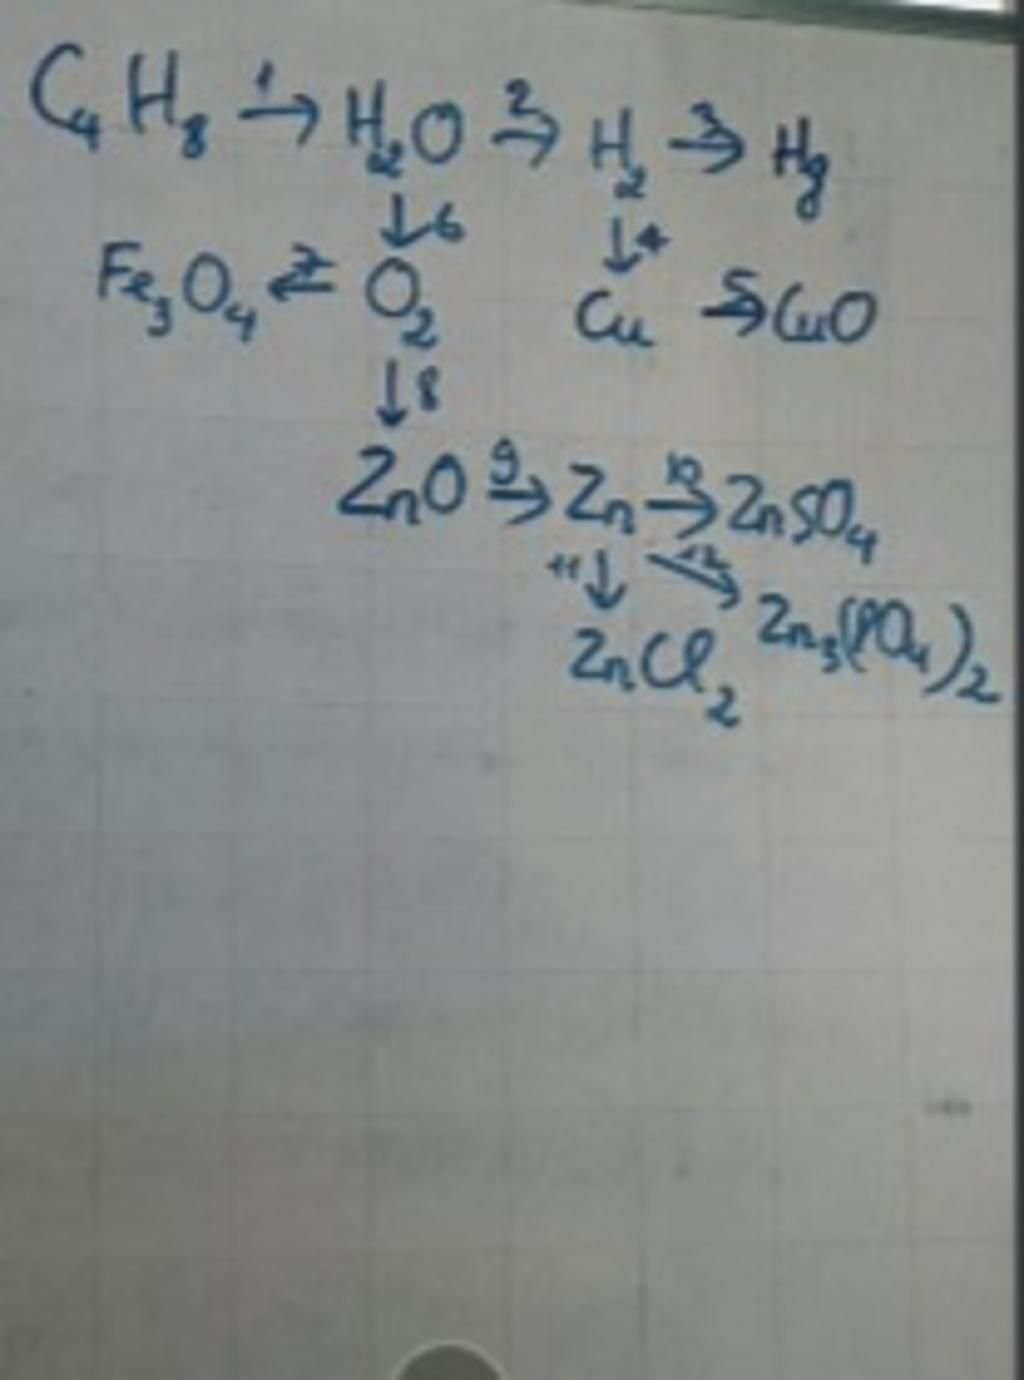 C₄H₈ →1 H₂O →2 H₂ →3 Hg
↓6 ↓4
Fe₃O₄ ←7 O₂ Cu →5 CuO
↓8
ZnO →9 Zn →10 ZnSO₄
11 ↓ ↘12
ZnCl₂ Zn₃(PO₄)₂